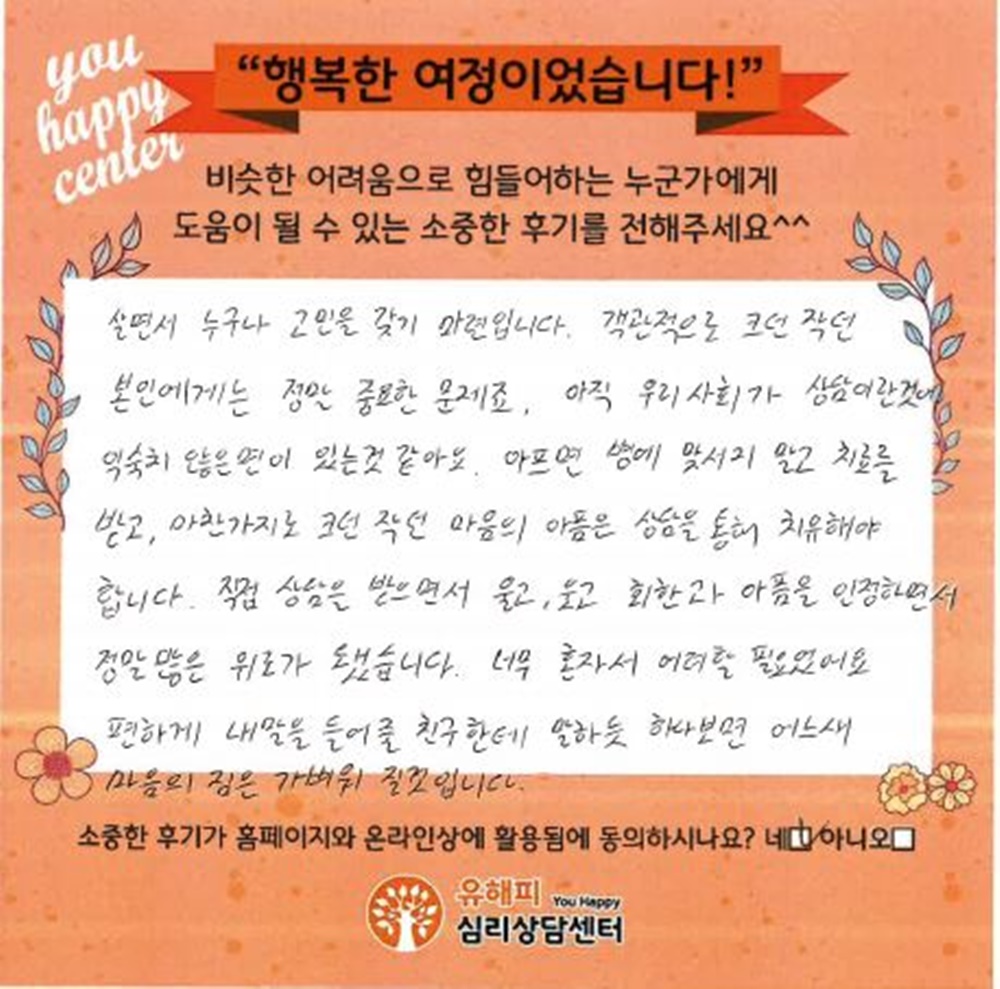 you
happy
center
“행복한 여정이었습니다!”
비슷한 어려움으로 힘들어하는 누군가에게
도움이 될 수 있는 소중한 후기를 전해주세요^^
살면서 누구나 고민을 갖기 마련입니다. 객관적으로 크던 작던
본인에게는 정말 중요한 문제죠. 아직 우리사회가 상담이란것에
익숙치 않은면이 있는것 같아요. 아프면 병에 맞서지 말고 치료를
받고, 마찬가지로 크던 작던 마음의 아픔은 상담을 통해 치유해야
합니다. 직접 상담은 받으면서 울고, 웃고 회한과 아픔을 인정하면서
정말 많은 위로가 됐습니다. 너무 혼자서 어려할 필요없어요
편하게 내말을 들어줄 친구한테 말하듯 하나보면 어느새
마음의 짐은 가벼워 질것입니다.
소중한 후기가 홈페이지와 온라인상에 활용됨에 동의하시나요? 네 아니오
유해피 You Happy
심리상담센터